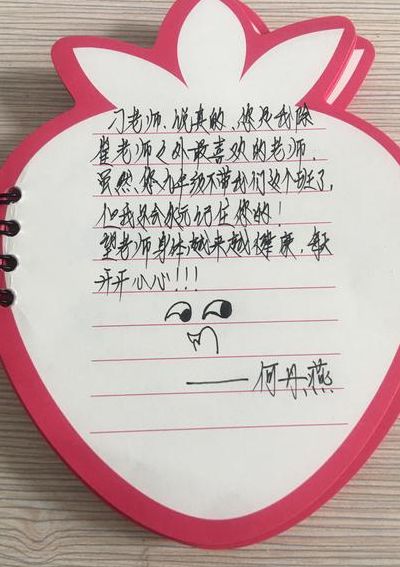 刁老师、说真的、您是我除
崔老师之外最喜欢的老师.
虽然、您九年级不带我们这个班了,
但我还会永远记住您的!
望老师身体越来越健康,每天
开开心心!!!
——何丹燕